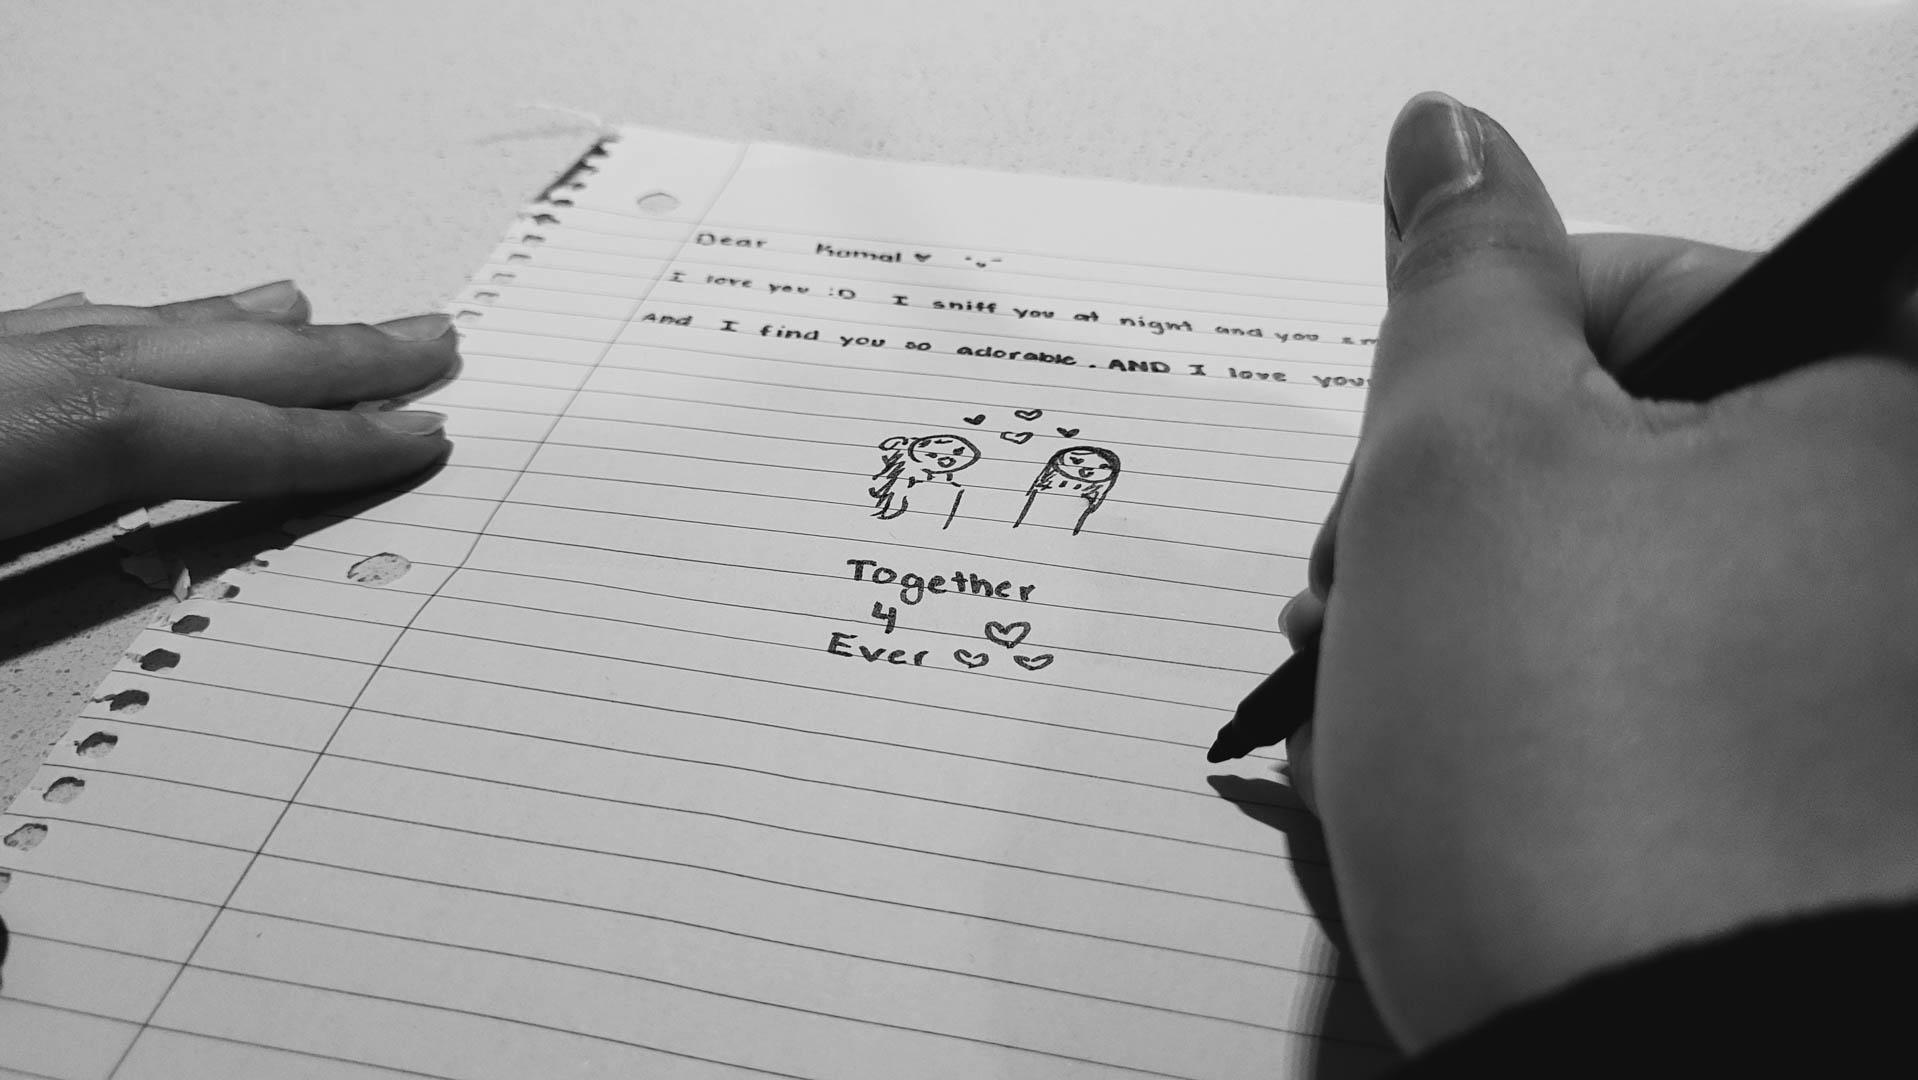 Dear Kamal ♥
I love you :D I sniff you at night and you
And I find you so adorable. AND I love
Together
4
Ever